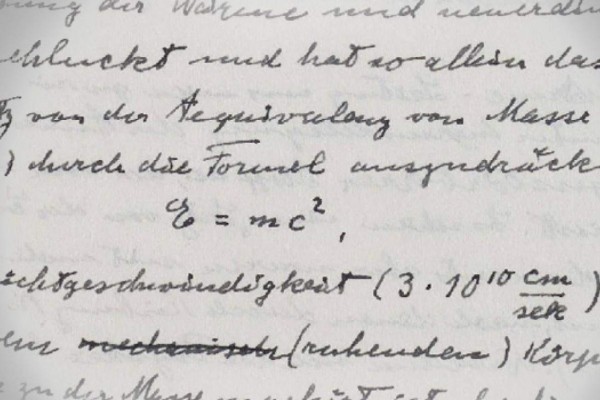 ung der Wärme und neuerdin
chluckt und hat so allein das
tz von der Aequivalenz von Masse
) durch die Formel auszudrück
E = mc²,
ichtgeschwindigkeit (3 . 10¹⁰ cm/sek)
em mechanisch (ruhenden) Körp
zu der Masse